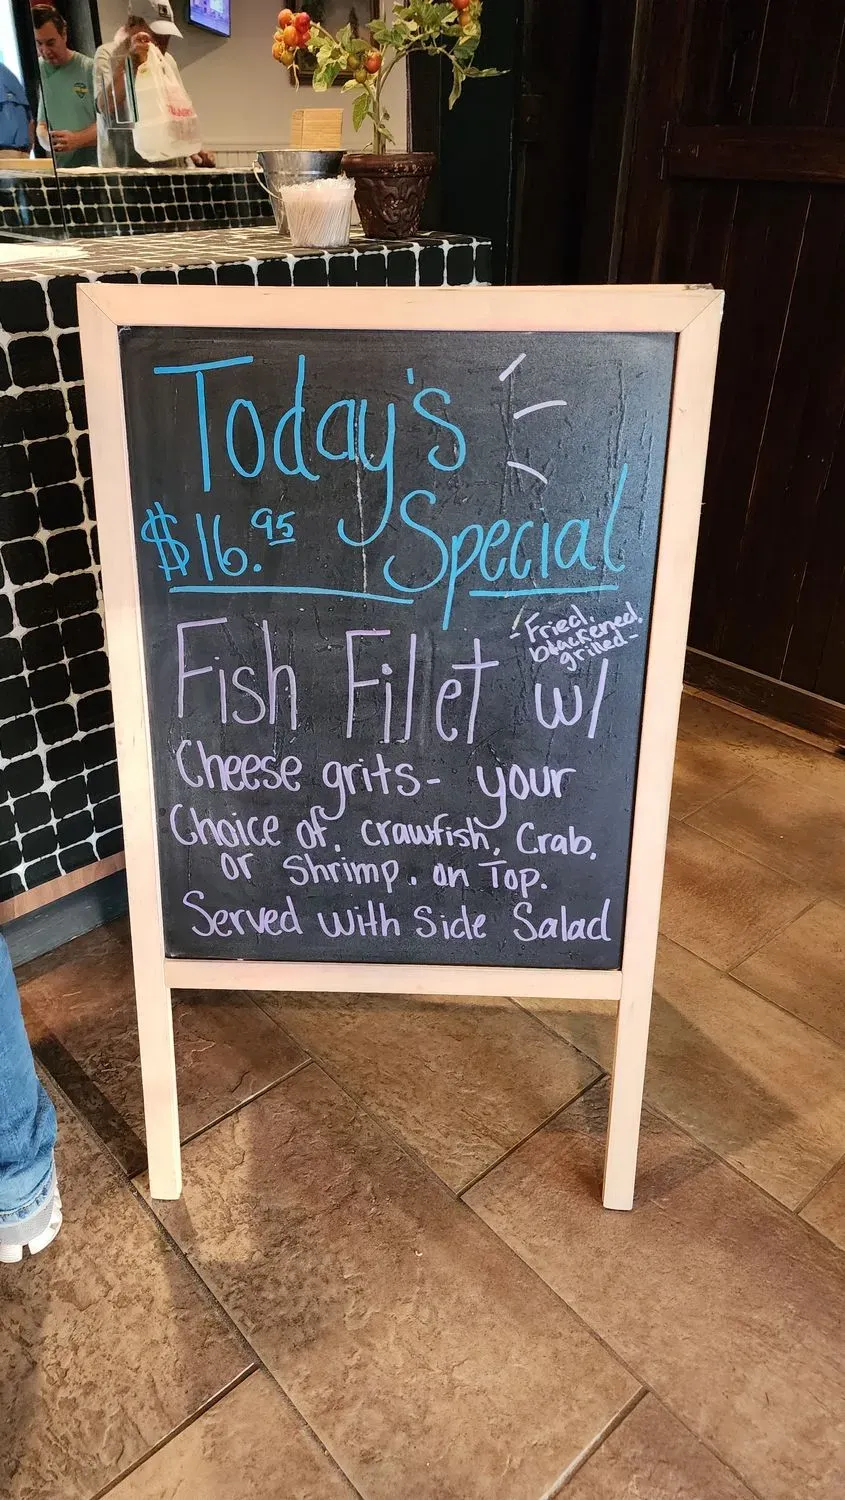 Today's
$16.95 Special
Fish Filet w/
-Fried,
blackened,
grilled-
Cheese grits- your
Choice of, crawfish, Crab,
or Shrimp. on Top.
Served with Side Salad